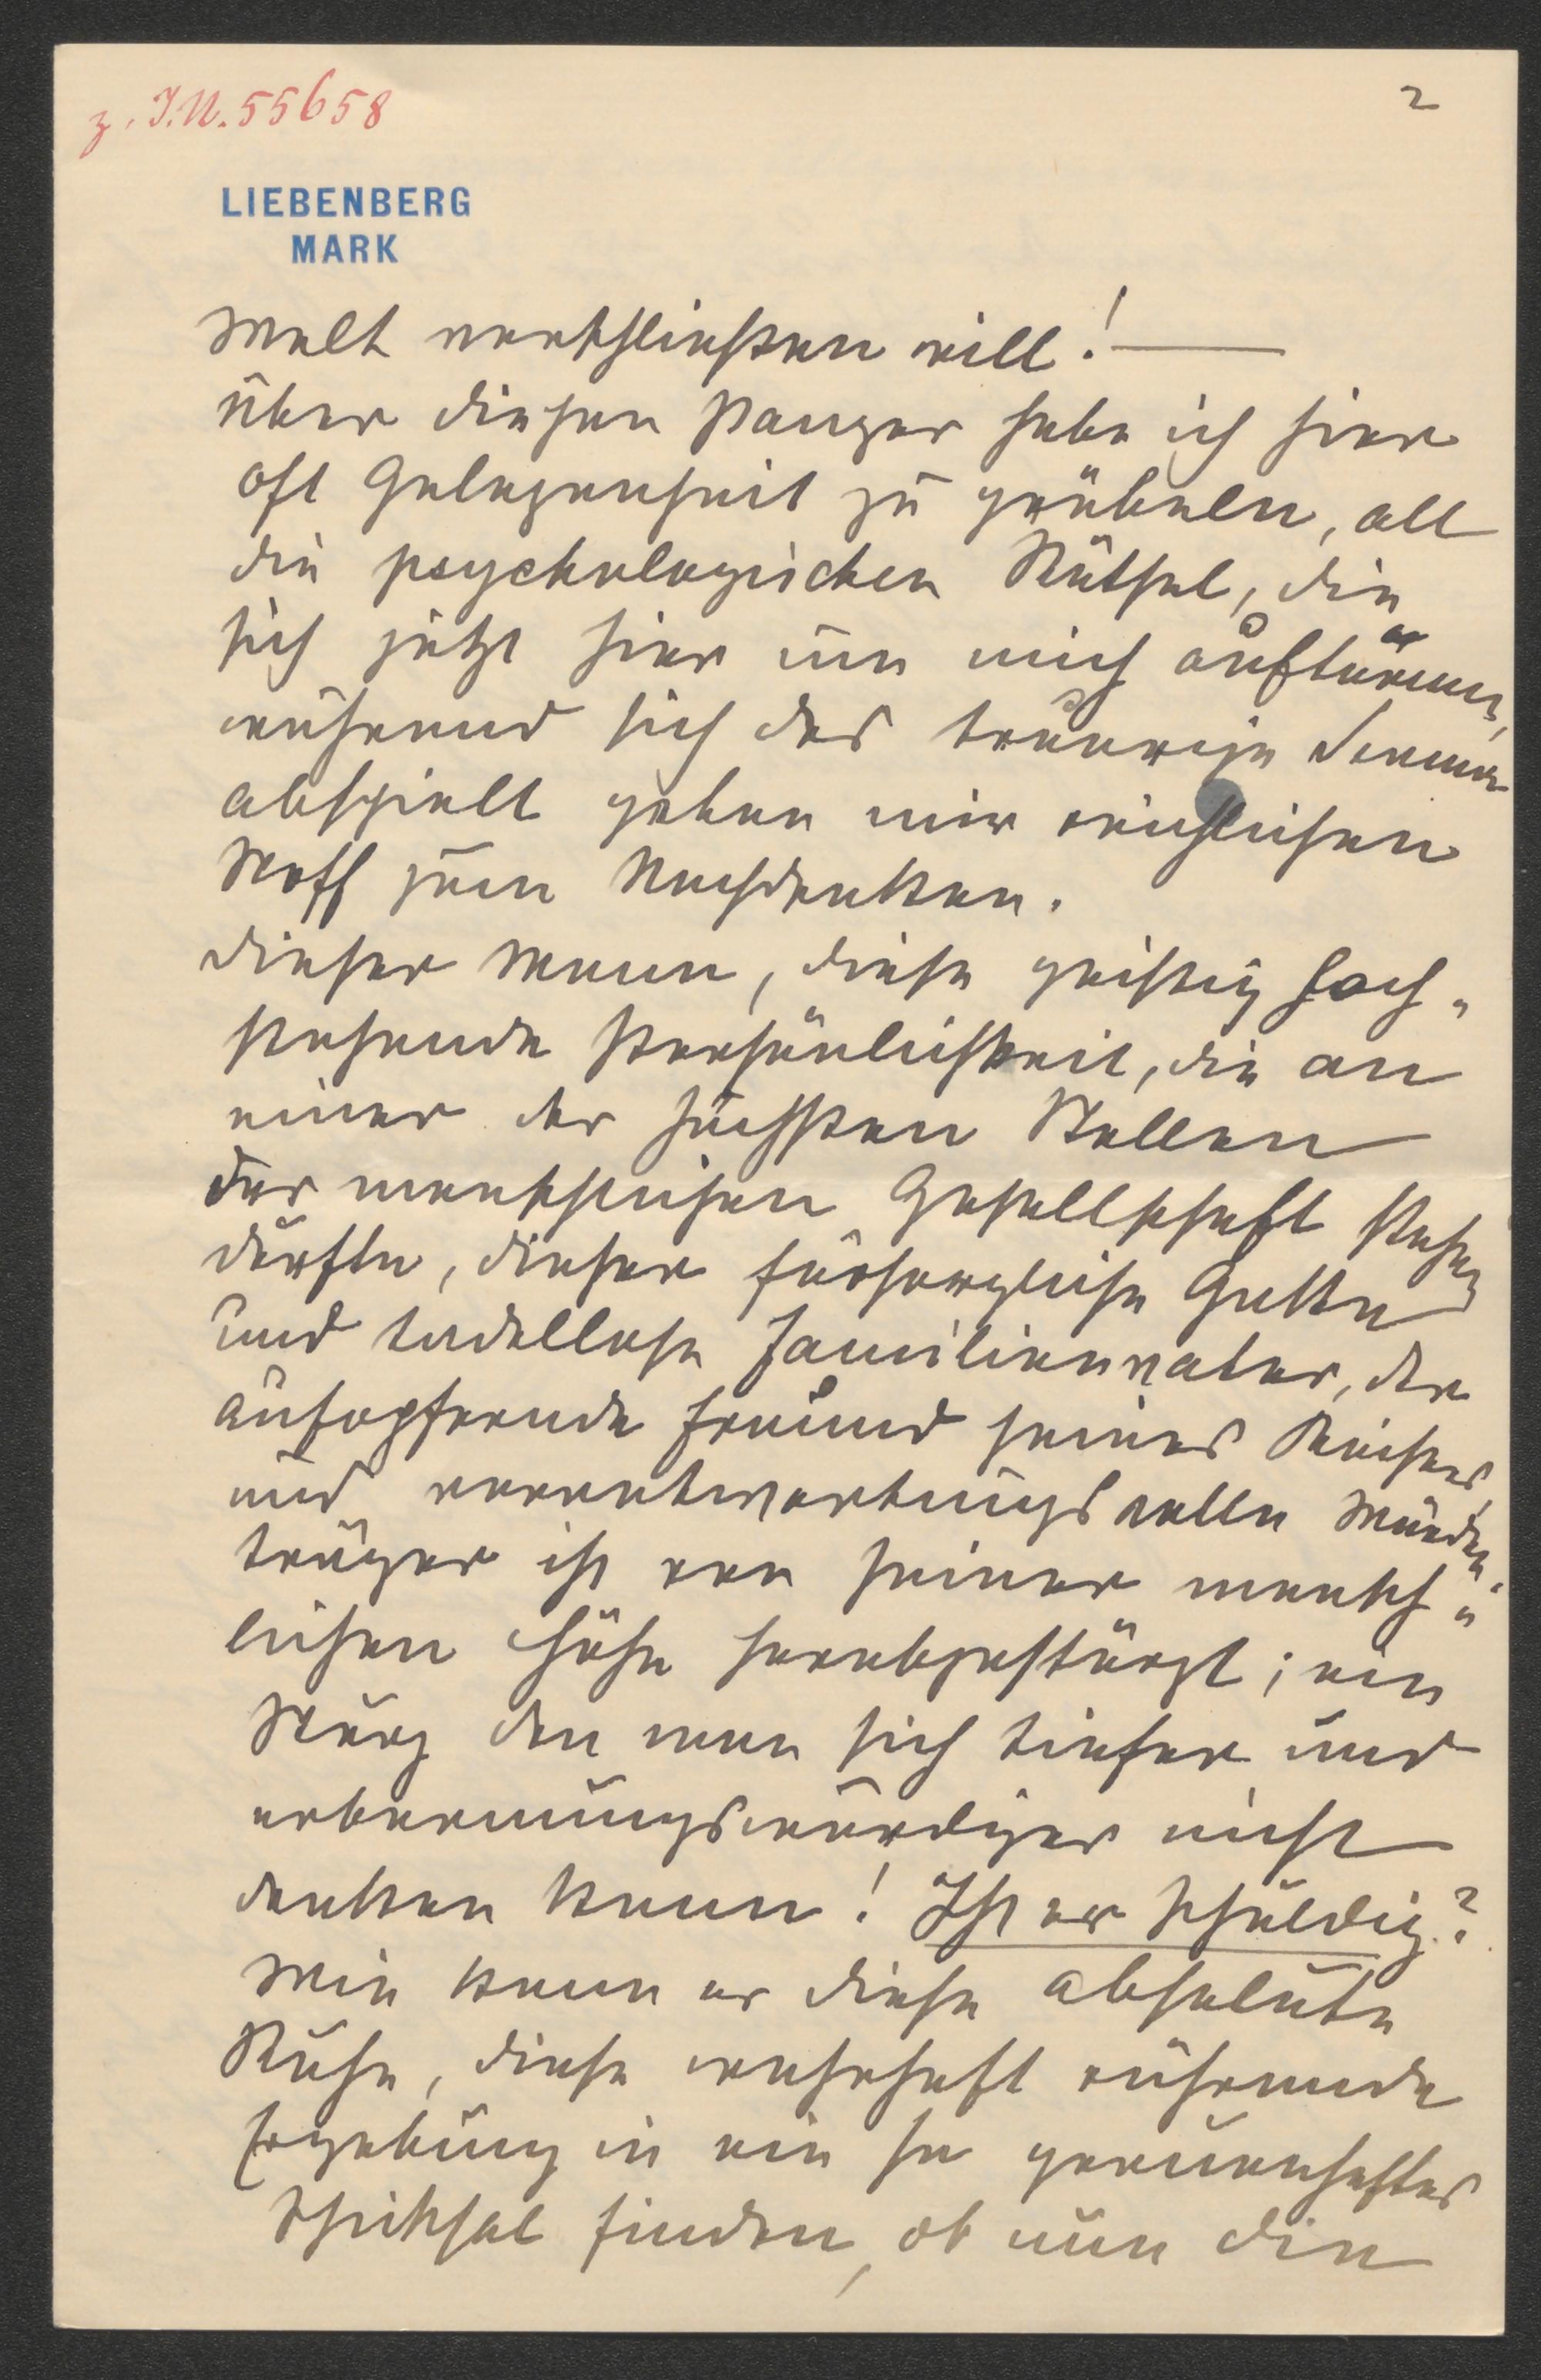 z. I.N. 55658
2
LIEBENBERG
MARK
Welt verschließen will! —
Über diesen Panzer habe ich hier
oft Gelegenheit zu grübeln, all
die psychologischen Rätsel, die
sich jetzt hier um mich auftürmen,
während sich das traurige Drama
abspielt geben mir reichlichen
Stoff zum Nachdenken.
Dieser Mann, diese geistig hoch-
stehende Persönlichkeit, die an
einer der höchsten Stellen
der menschlichen Gesellschaft stehen
durfte, dieser fürsorgliche Gatte
und tadellose Familienvater, der
aufopfernde Freund seines Kaisers,
und verantwortungsvolle Würden-
träger ist von seiner mensch-
lichen Höhe herabgestürzt; ein
Sturz den man sich tiefer und
erbarmungswürdiger nicht
denken kann! Ist er schuldig?
Wie kann er diese absolute
Ruhe, diese wahrhaft rührende
Ergebung in ein so grauenhaftes
Schicksal finden, ob nun die